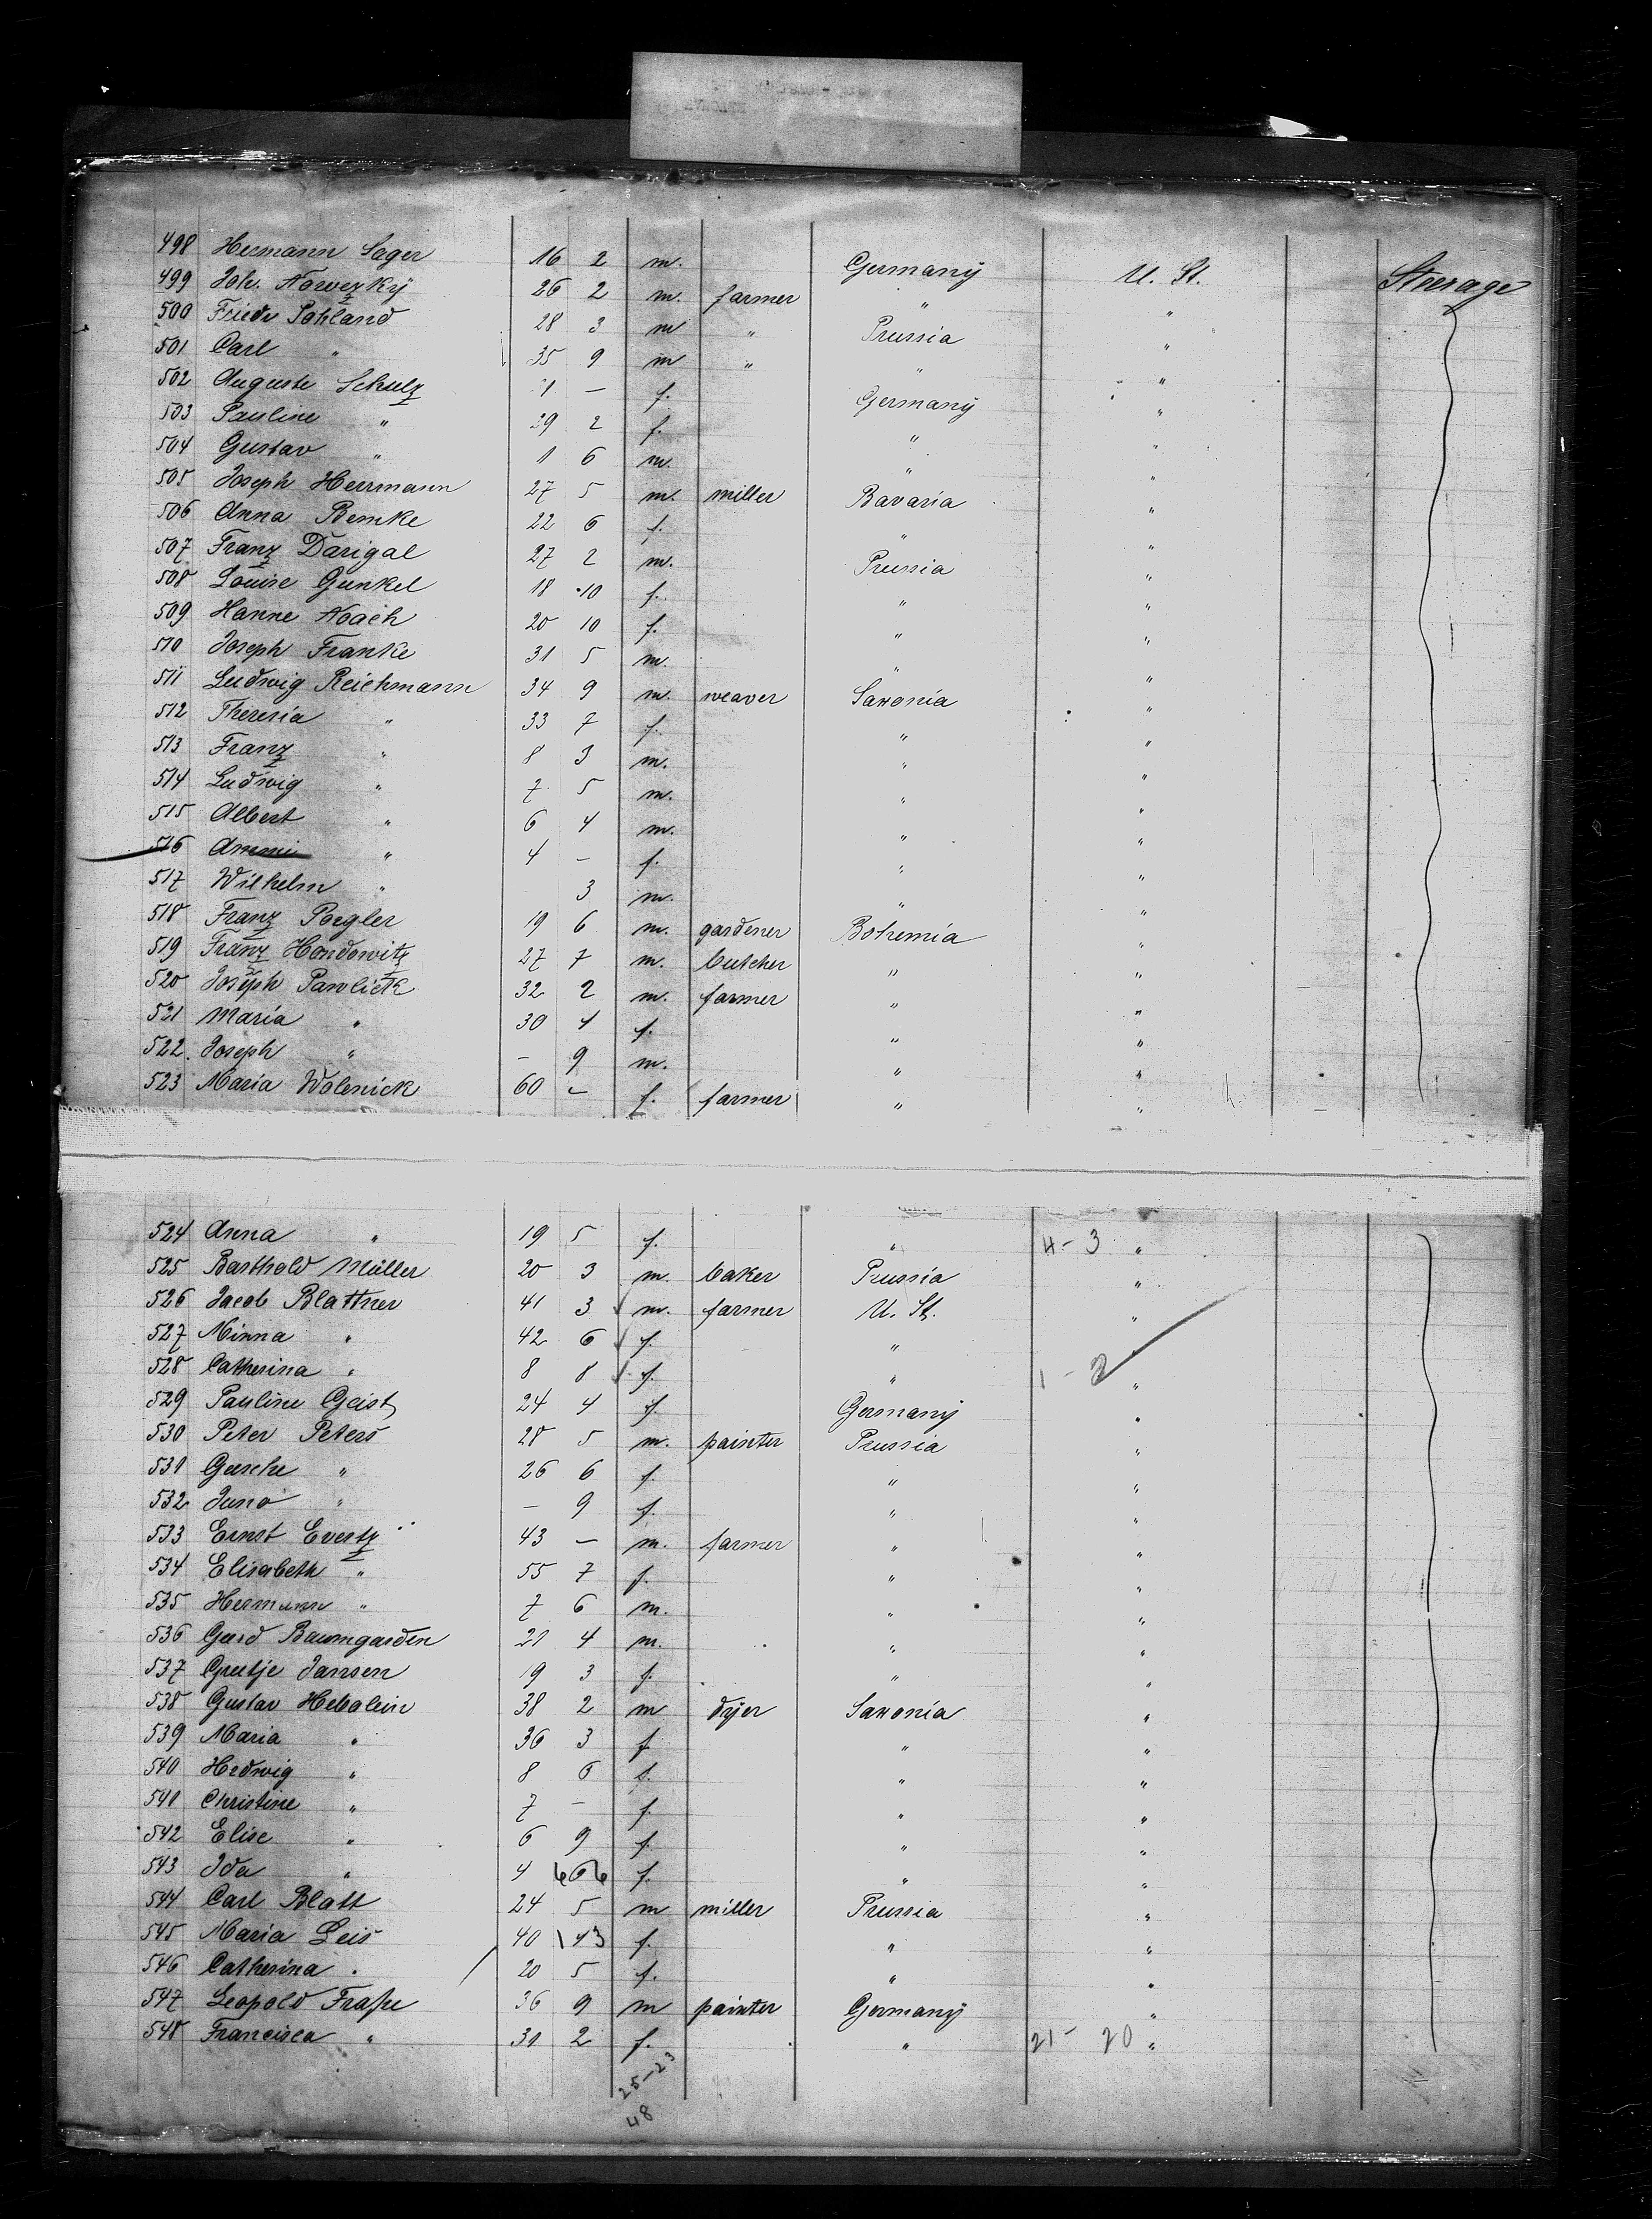 498 Hermann Sager 16 2 m. Germany U. St. Steerage
499 Joh. Nowezky 26 2 m. farmer " "
500 Friedr Pohland 28 3 m " Prussia "
501 Carl " 35 9 m " " "
502 Auguste Schulz 31 – f. Germany "
503 Pauline " 29 2 f. " "
504 Gustav " 1 6 m. " "
505 Joseph Herrmann 27 5 m. miller Bavaria "
506 Anna Bemke 22 6 f. " "
507 Franz Darigal 27 2 m. Prussia "
508 Louise Gunkel 18 10 f. " "
509 Hanne Noach 20 10 f. " "
510 Joseph Franke 31 5 m. " "
511 Ludwig Reichmann 34 9 m. weaver Saxonia "
512 Theresia " 33 7 f. " "
513 Franz " 8 3 m. " "
514 Ludwig " 7 5 m. " "
515 Albert " 6 4 m. " "
516 " 4 – f. " "
517 Wilhelm " 3 m. " "
518 Franz Poegler 19 6 m. gardener Bohemia "
519 Franz Hondowitz 27 7 m. butcher " "
520 Joseph Pawlick 32 2 m. farmer " "
521 Maria " 30 4 f. " "
522. Joseph " – 9 m. " "
523 Maria Wolenick 60 – f. farmer " "
524 Anna " 19 5 f. " 4-3 "
525 Barthold Müller 20 3 m. baker Prussia "
526 Jacob Blattner 41 3 m. farmer U. St. "
527 Minna " 42 6 f. "
528 Catherina " 8 8 f. " 1-2 "
529 Pauline Geist 24 4 f. Germany "
530 Peter Peters 28 5 m. painter Prussia "
531 Gesche " 26 6 f. " "
532 " – 9 f. " "
533 Ernst Evertz 43 – m. farmer " "
534 Elisabeth " 55 7 f. " "
535 Hermann " 7 6 m. " "
536 Gerd Baumgarden 21 4 m. " "
537 Greetje Jansen 19 3 f. " "
538 Gustav Hebalein 38 2 m dyer Saxonia "
539 Maria " 36 3 f " "
540 Hedwig " 8 6 f. " "
541 Christine " 7 – f. " "
542 Elise " 6 9 f. " "
543 Ida " 4 6 f. " "
544 Carl Blatt 24 5 m miller Prussia "
545 Maria Leis 40 f. " "
546 Catherina " 20 5 f. " "
547 Leopold Fraße 36 9 m painter Germany "
548 Francisca " 31 2 f. " 21-20 "
25-23
48